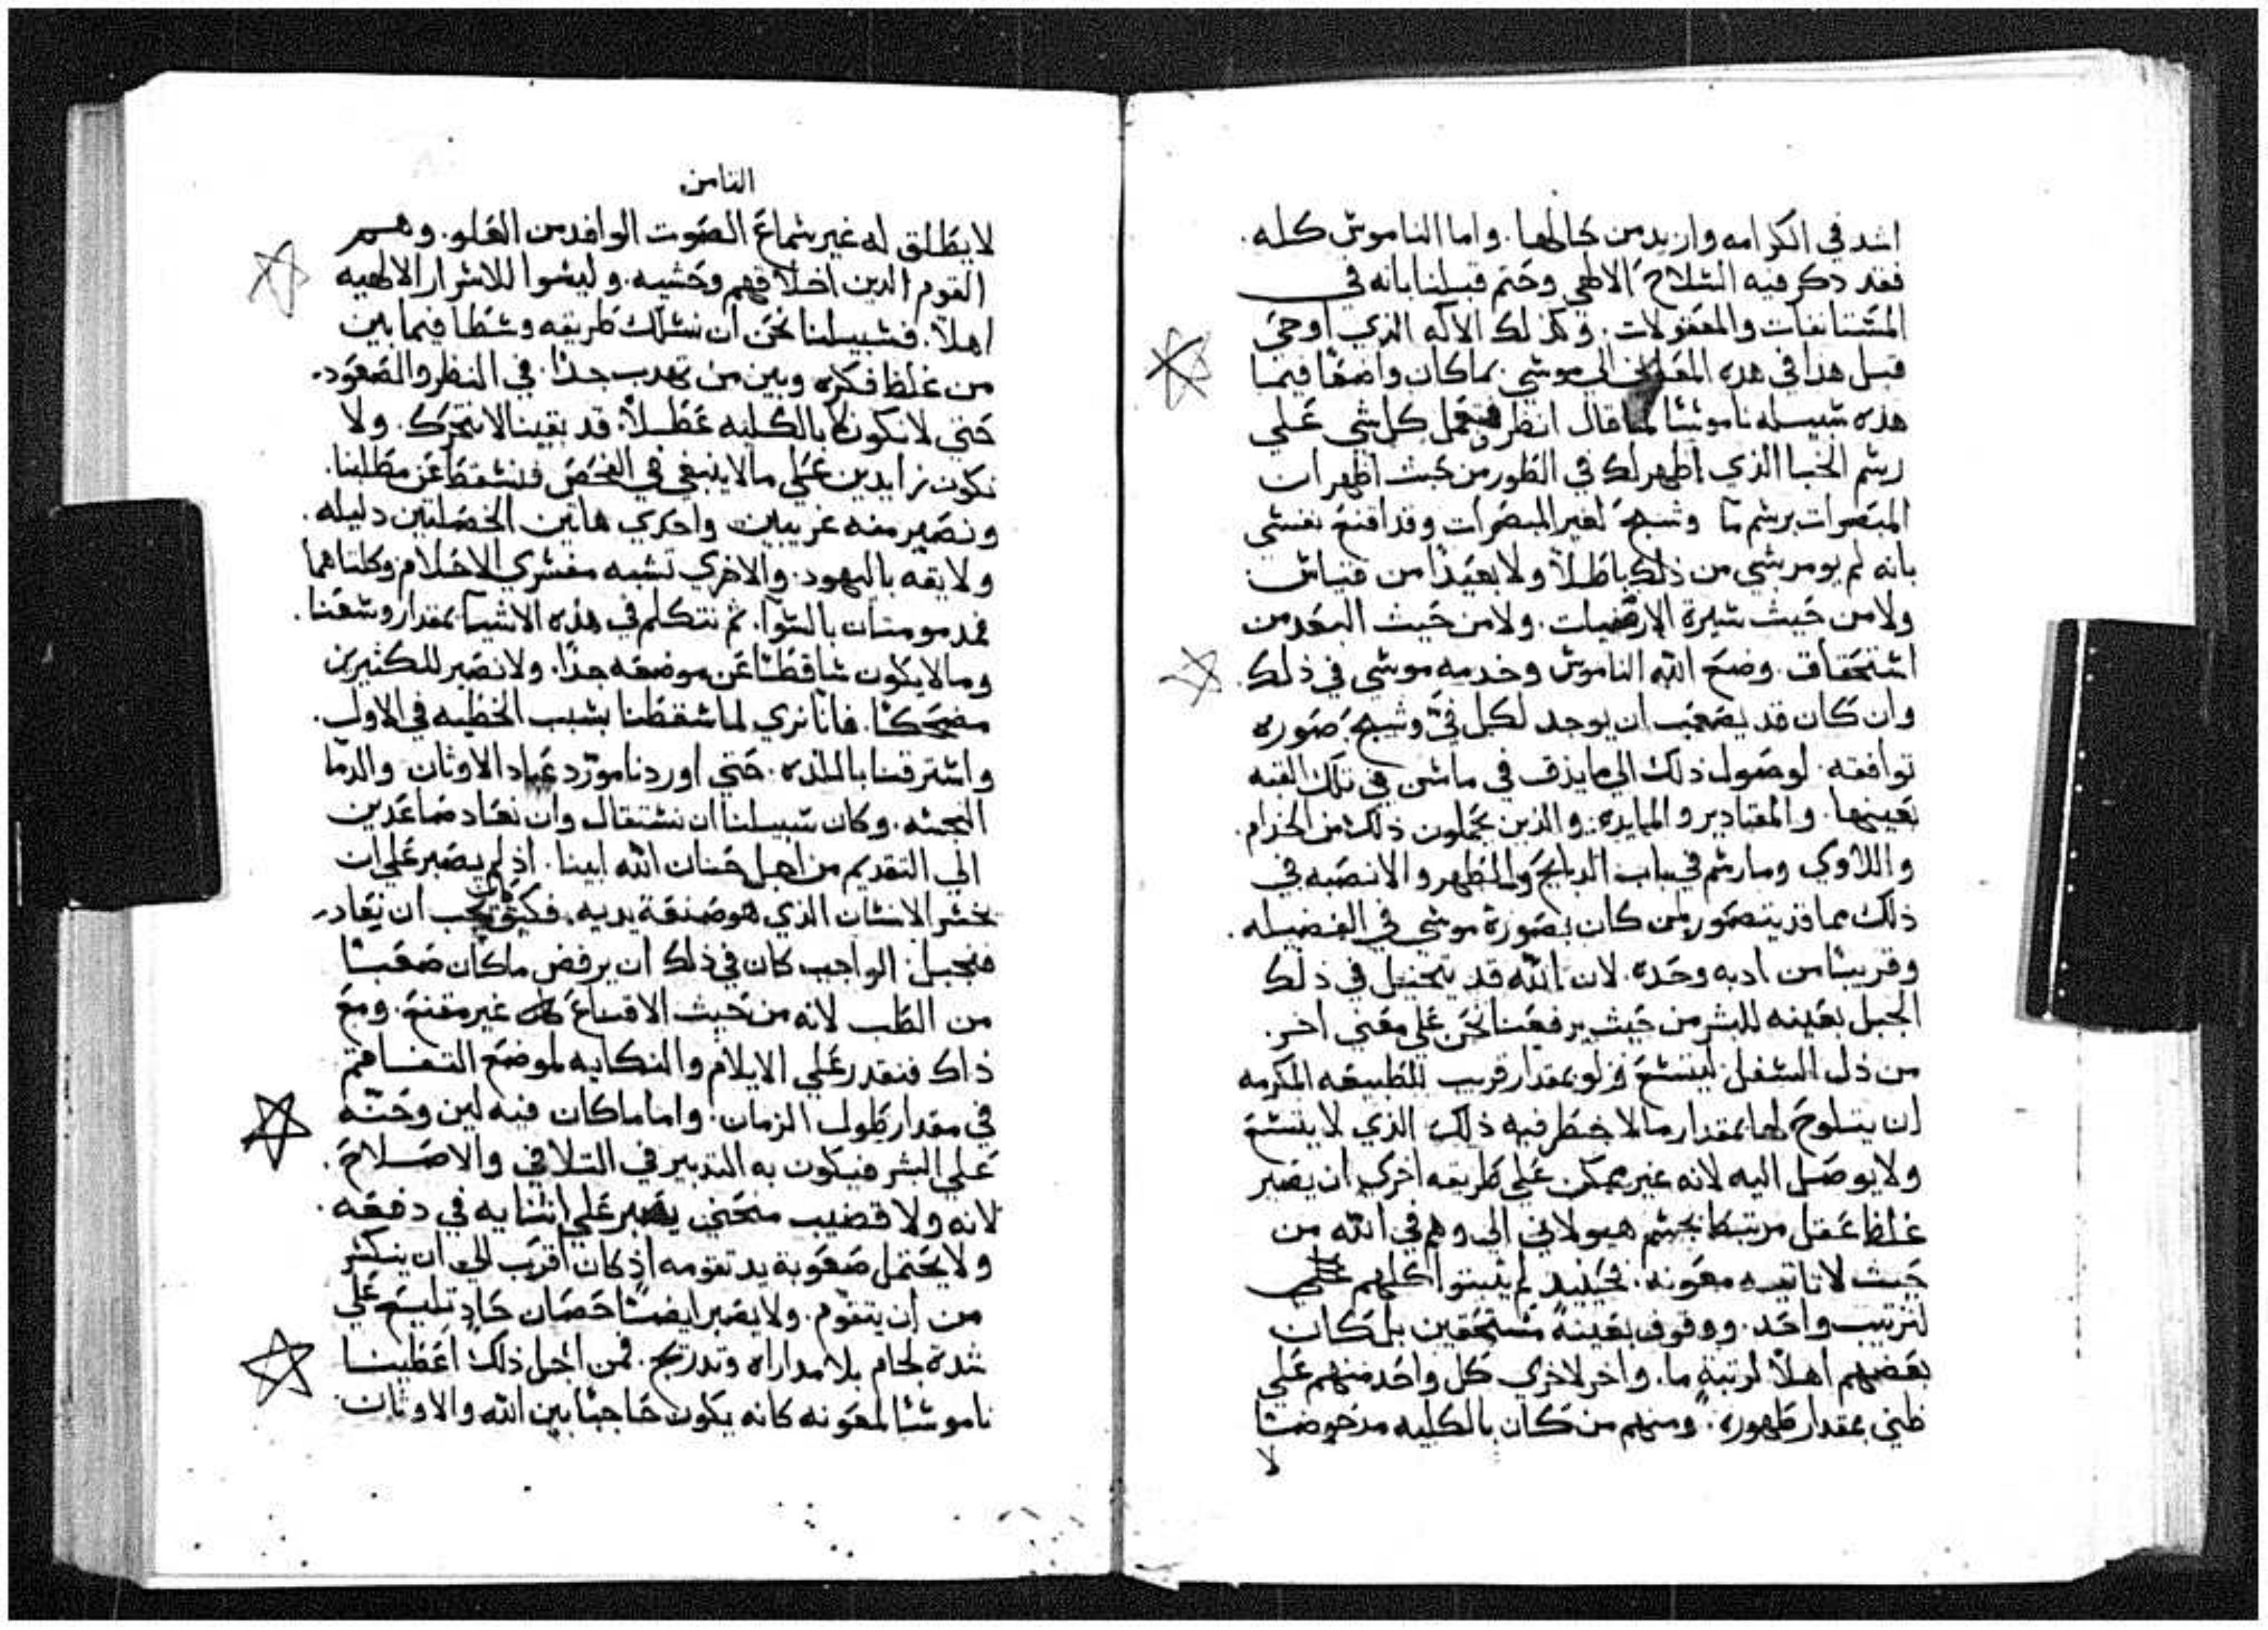 اشد في الكرامه وازيد من كمالها. واما الناموس كله.
فقد ذكر فيه السلاح الالهي وختم قبلنا بانه في
المستانفات والمعقولات. وكذلك الاله الذي اوحي
قبل هذا في هذه الي موسي. بما كان واضعًا فيما
هذه سبيله ناموسًا لما قال انظر كل شي علي
رسم الخبا الذي اظهر لك في الطور من حيث اظهر ان
المبصرات برسم ما وشبح لغير المبصرات وقد اقنع نفسي
بانه لم يومر بشي من ذلك باطلاً ولا بعيدًا من قياس
ولا من حيث سيرة الارضيات. ولا من حيث البعد من
استحقاق. وضع الله الناموس وخدمه موسي في ذلك.
وان كان قد يصعب ان يوجد لكل في وشبح صوره
توافقه. لوصول ذلك الي ما يذق في ماشن في تلك القبه
بعينها. والمقادير والمايده. والذين يحملون ذلك من الخدام.
واللاوي وما رسم في باب الدبايح والمطهر والانصبه في
ذلك مما قد يتصور لمن كان بصورة موسي في الفضيله.
وقريبًا من ادبه وحده. لان الله قد يتخيل في ذلك
الجبل بعينه للبشر من حيث يرفعنا نحن علي معني اخر.
من ذل السفل ليتسع ولو بمقدار قريب للطبيعه المكرمه
ان يتلوح لها بمقدار ما لا خطر فيه ذلك الذي لا يتسع
ولا يوصل اليه لانه غير ممكن علي طريقه اخري ان يصبر
غلظ عقل مرتبكا بجسم هيولاني الي وهم في الله من
حيث لا تاتيه معونه. فحينيد لم يثبتوا كلهم علي
لترتيب واحد. ووقوف بعينه مستحقين بل كان
بعضهم اهلاً لرتبةٍ ما. واخر لاخري كل واحد منهم علي
ظني بمقدار طهوره. ومنهم من كان بالكليه مدحوضًا
لا
الثامن
لا يطلق له غير سماع الصوت الوافد من العلو. وهم
القوم الذين اخلاقهم وحشيه. وليسوا للاسرار الالهيه
اهلاً. فسبيلنا نحن ان نسلك طريقه وسطا فيما بين
من غلظ فكره وبين من تهدب جدًا. في النظر والصعود.
حتي لا نكون بالكليه عطلاً. قد بقينا لا نتحرك. ولا
نكون زايدين علي ما لا ينبغي في الفحص فنسقط عن مطلبنا.
ونصير منه غريبين واحدي هاتين الخصلتين دليله.
ولايقه باليهود. والاخري تشبه مفسري الاحلام وكلتاهما
مدمومتان بالسوا. ثم نتكلم في هذه الاشيا بمقدار وسعنا.
وما لا يكون ساقطًا عن موضعه جدًا. ولا نصير للكثيرين
مضحكًا. فانا نري لما سقطنا بسبب الخطيه في الاول.
واسترقنا باللذه. حتي اوردنا مورد عباد الاوثان والدما
النجسه. وكان سبيلنا ان نستقال وان نعاد صاعدين
الي التقديم من اجل حنان الله ابينا. اذ لم يصبر علي ان
يخسر الانسان الذي هو صنعة يديه. فكيف كان يجب ان يعاد.
فيجبل. الواجب كان في ذلك ان يرفض ما كان صعبًا
من الطب لانه من حيث الاقناع كان غير مقنع. ومع
ذاك فنقدر علي الايلام والنكايه لموضع التفاقم
في مقدار طول الزمان. واما ما كان فيه لين وحنّه
علي البشر فيكون به التدبير في التلافي والاصلاح.
لانه ولا قضيب منحني يصبر علي انثنايه في دفعه.
ولا يحتمل صعوبة يد تقومه اذ كان اقرب الي ان ينكسر
من ان يتقوم. ولا يصبر ايضًا حصان حاد تلبيع علي
شدة لجام بلا مداراه وتدريج. فمن اجل ذلك اعطينا
ناموسًا لمعونه كانه يكون حاجبًا بين الله والاوثان.